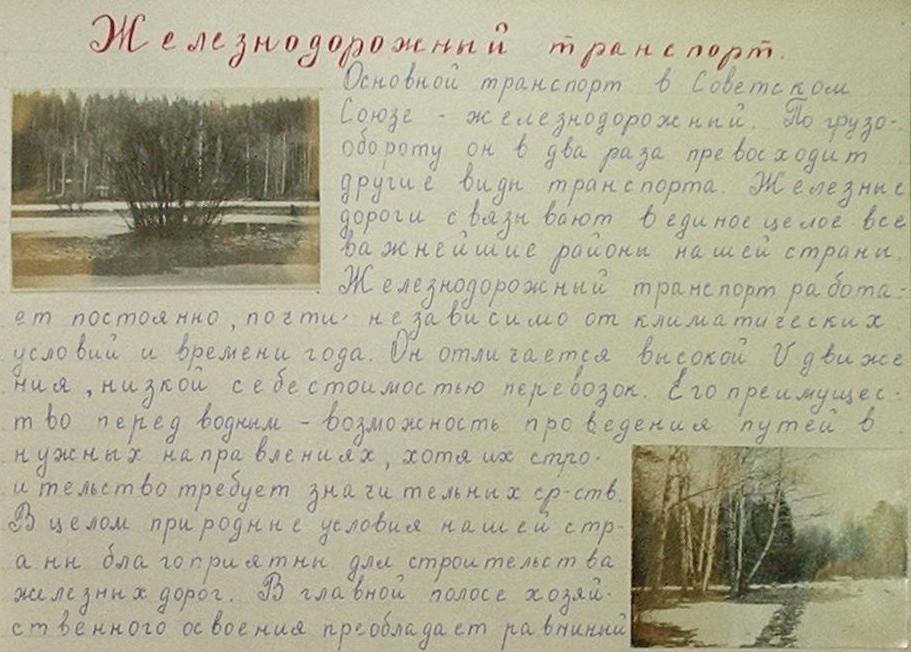 Железнодорожный транспорт.
Основной транспорт в Советском
Союзе - железнодорожный. По грузо-
обороту он в два раза превосходит
другие виды транспорта. Железные
дороги связывают в единое целое все
важнейшие районы нашей страны.
Железнодорожный транспорт работа-
ет постоянно, почти независимо от климатических
условий и времени года. Он отличается высокой V движе
ния, низкой себестоимостью перевозок. Его преимущес-
тво перед водным - возможность проведения путей в
нужных направлениях, хотя их стро-
ительство требует значительных ср-ств.
В целом природные условия нашей стр-
аны благоприятны для строительства
железных дорог. В главной полосе хозяй-
ственного освоения преобладает равниный